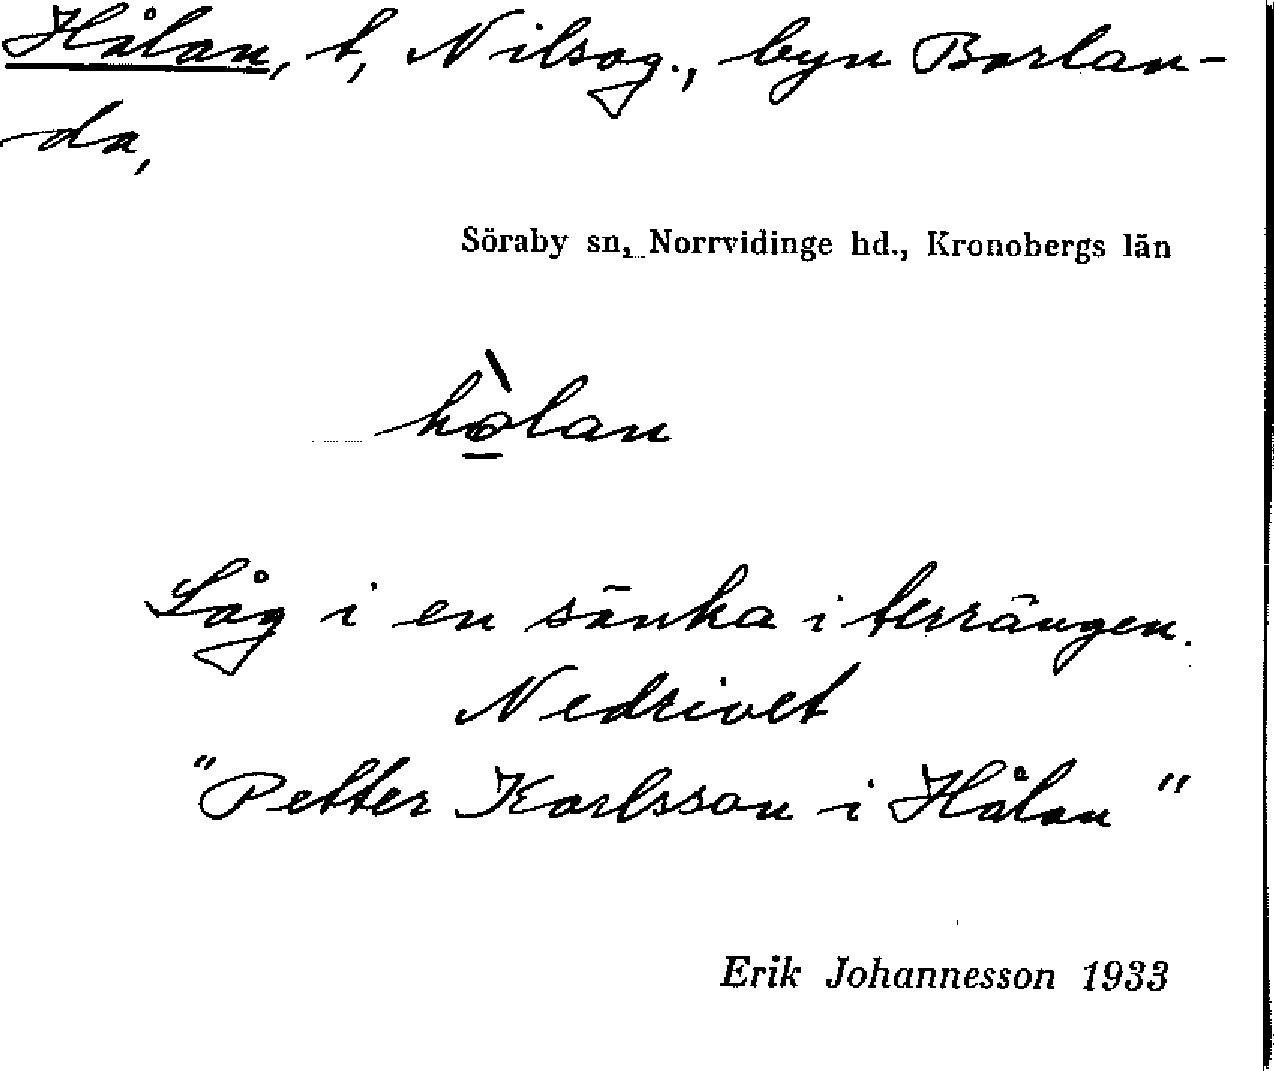 Hålan, t, Nilsog., byn Borlan-
da,
Söraby sn, Norrvidinge hd., Kronobergs län
hòlan
Låg i en sänka i terrängen.
Nedrivet
"Petter Karlsson i Hålan"
Erik Johannesson 1933